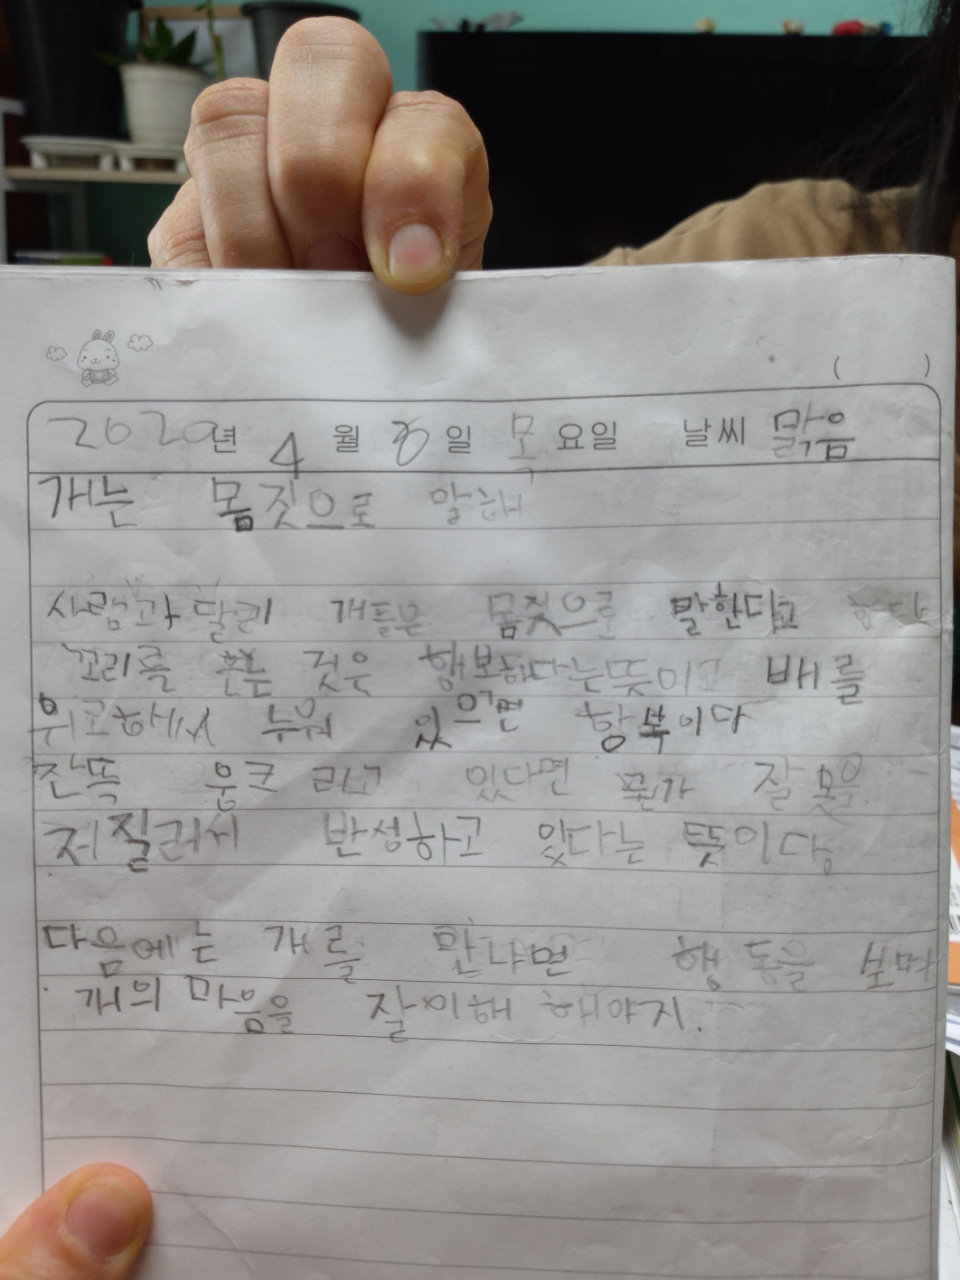 ( )
2020년 4월 30일 목요일 날씨 맑음
개는 몸짓으로 말해
사람과 달리 개들은 몸짓으로 말한다고 한다
꼬리를 흔는 것은 행보하다는뜻이고 배를
위고해에서 누워 있으면 항복이다
잔뜩 웅크 리고 있다면 뭔가 잘 못을
저질러서 반성하고 있다는 뜻이다.
다음에는 개를 만나면 행동을 보며
개의 마음을 잘이해 해야지.